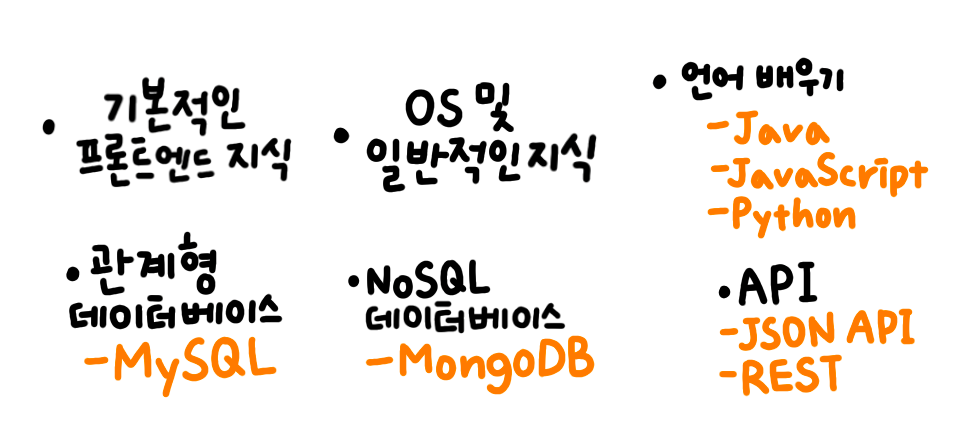 • 기본적인
프론트엔드 지식
• OS 및
일반적인 지식
• 언어 배우기
-Java
-JavaScript
-Python
• 관계형
데이터베이스
-MySQL
• NoSQL
데이터베이스
-MongoDB
• API
-JSON API
-REST